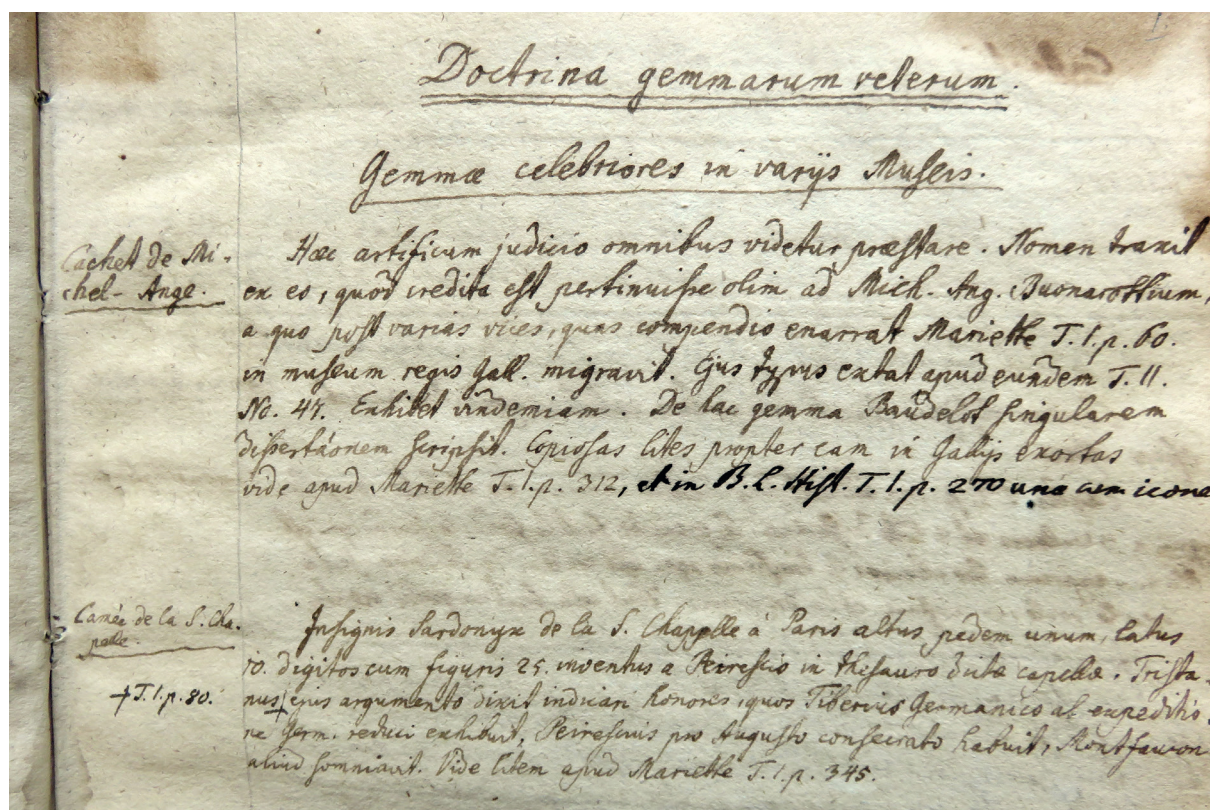 Doctrina gemmarum veterum.
Gemmæ celebriores in varijs Museis.
Cachet de Mi-
chel-Ange.
Hæc artificum judicio omnibus videtur præstare. Nomen traxit
ex eo, quod credita est pertinuisse olim ad Mich. Ang. Buonarottium,
a quo post varias vices, quas compendio enarrat Mariette T. I. p. 60.
in museum regis Gall. migravit. Ejus typus extat apud eundem T. II.
No. 47. Exhibet vindemiam. De hac gemma Baudelot singularem
dissertãonem scripsit. Copiosas lites propter eam in Gallijs exortas
vide apud Mariette T. I. p. 312, et in B. L. Hist. T. I. p. 270 una cum icone
Camée de la S. Cha-
pelle.
Insignis Sardonyx de la S. Chappelle à Paris altus pedem unum, latus
10. digitos cum figuris 25. inventus a Peirescio in thesauro dictæ capellæ. Trista-
nus + ejus argumento dixit indicari honores, quos Tiberius Germanico ab expeditio-
+ T. I. p. 80.
ne Germ. reduci exhibuit, Peirescius pro Augusto consecrato habuit, Montfaucon
aliud somniavit. Vide litem apud Mariette T. I. p. 345.